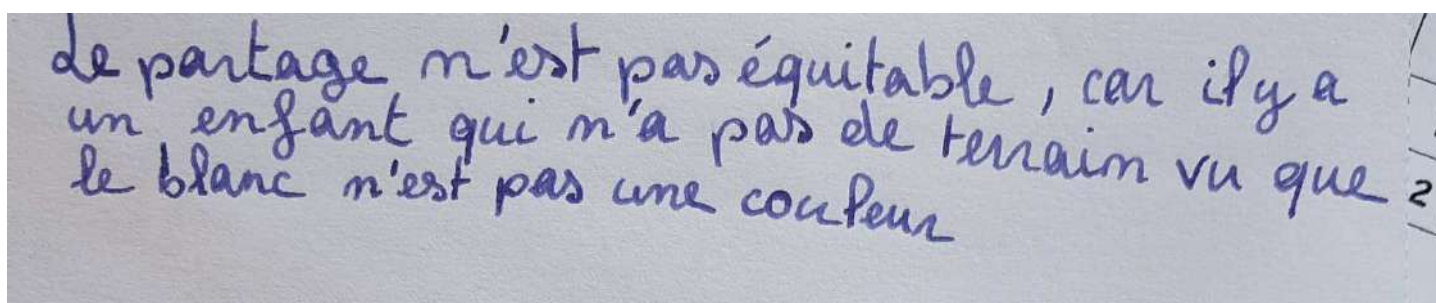 Le partage n'est pas équitable, car il y a
un enfant qui n'a pas de terrain vu que
le blanc n'est pas une couleur
2